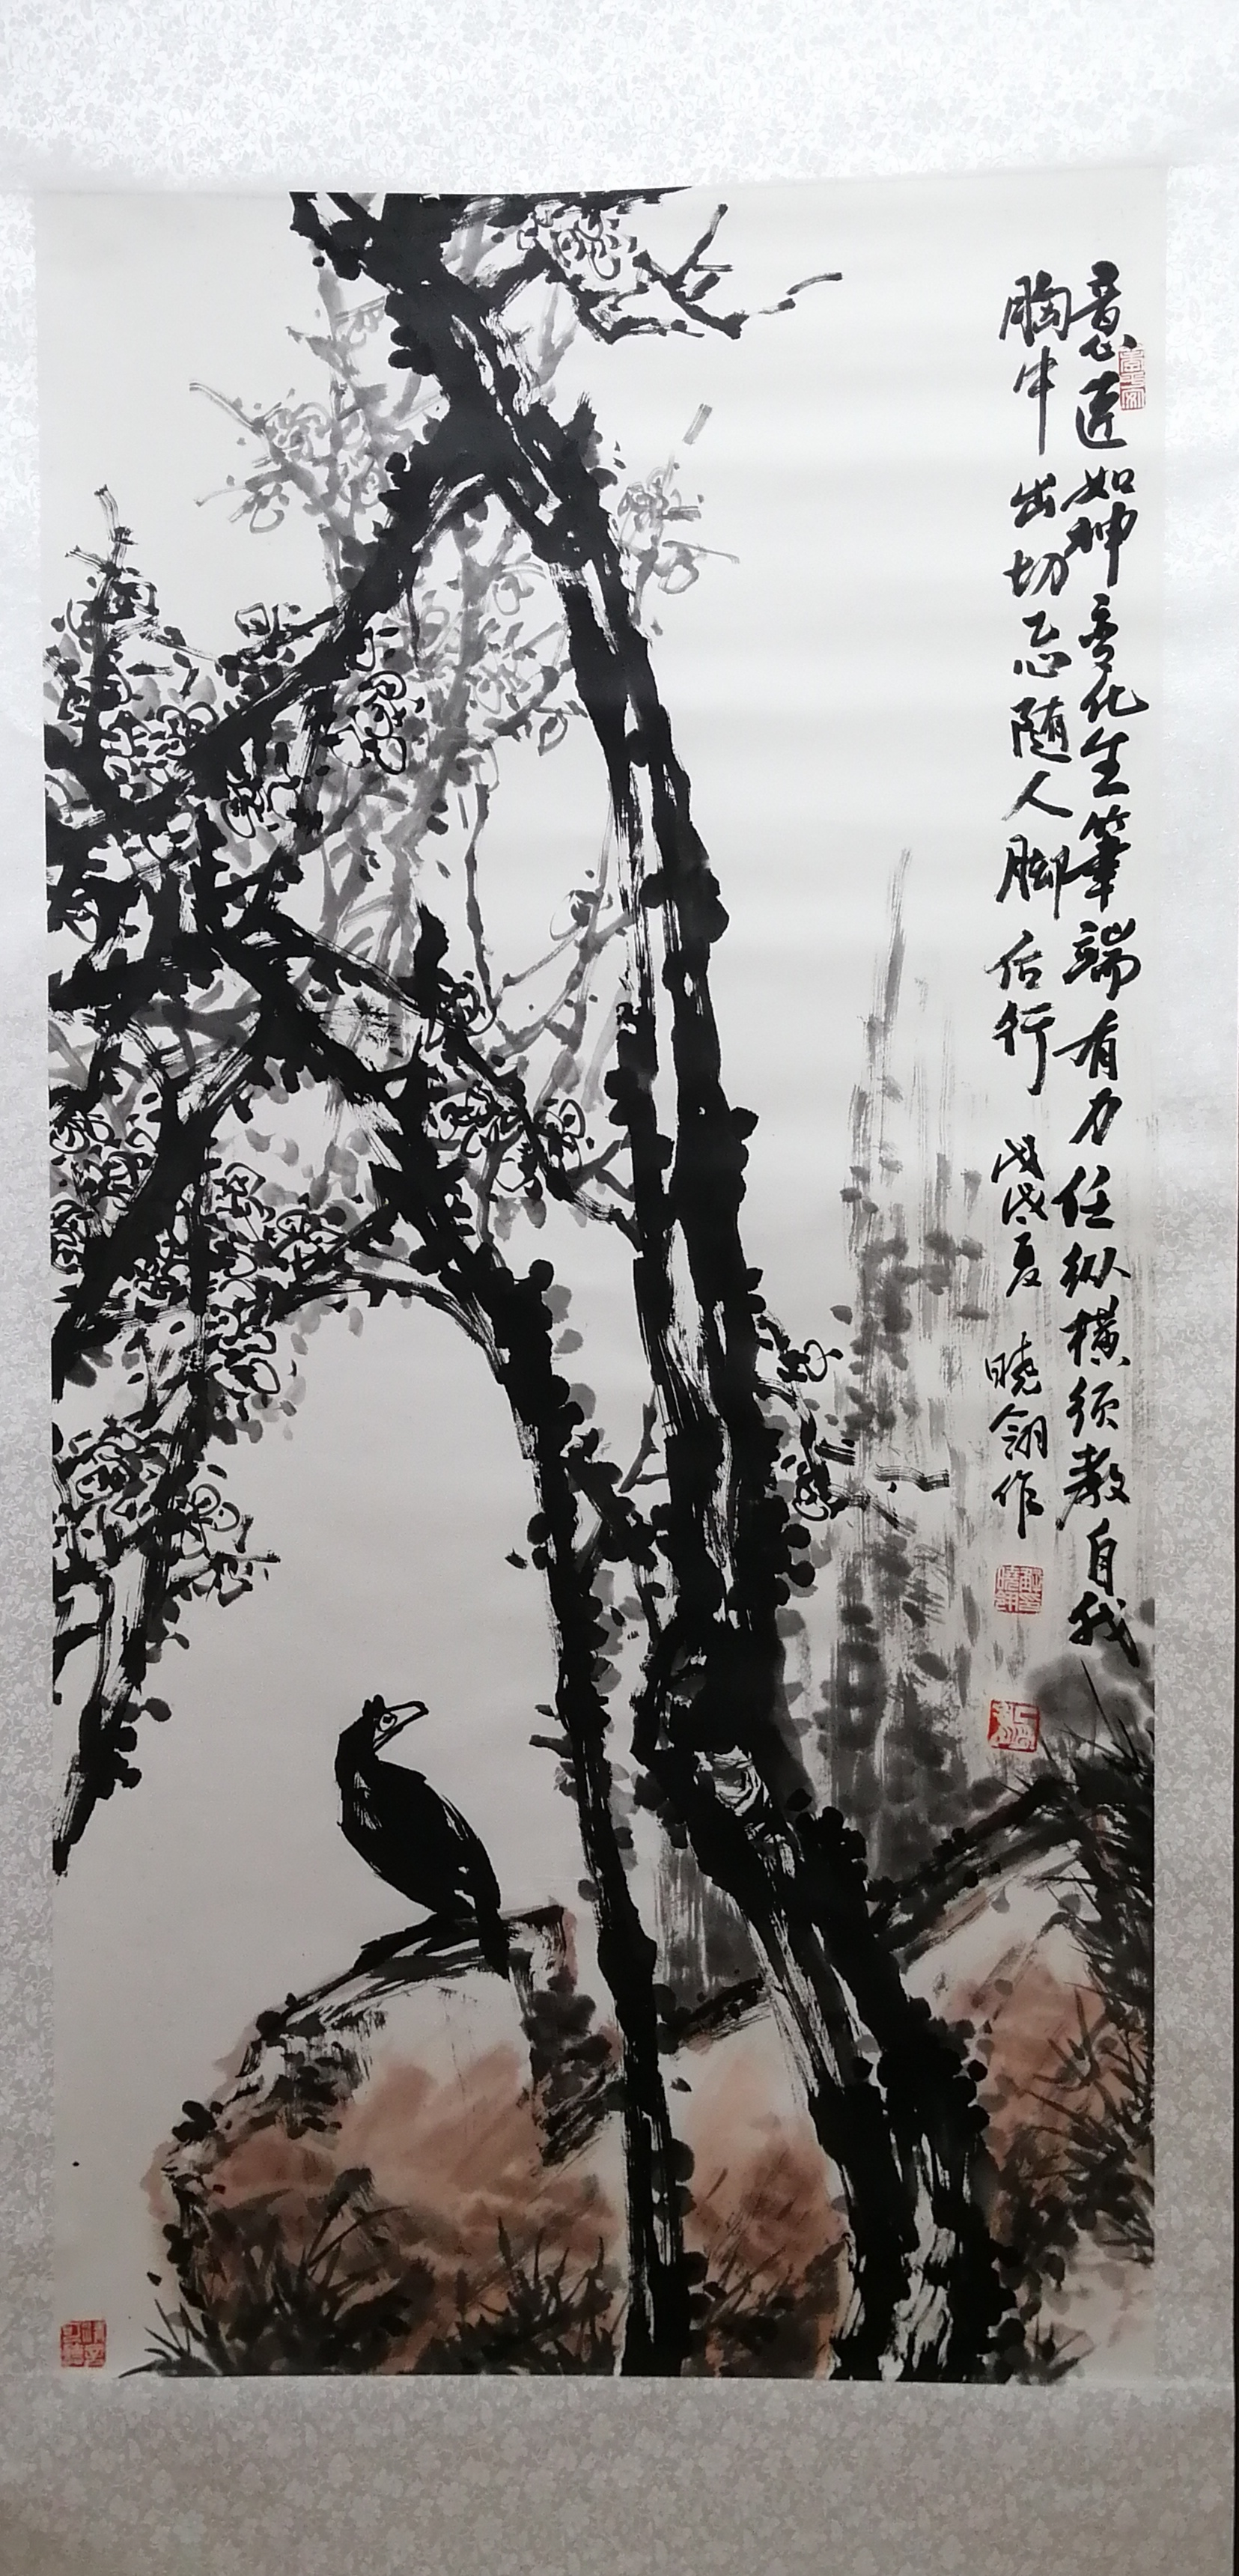 意匠如神变化生笔端有力任纵横须教自我
胸中出切忌随人脚后行 戊戌夏 晓翎作